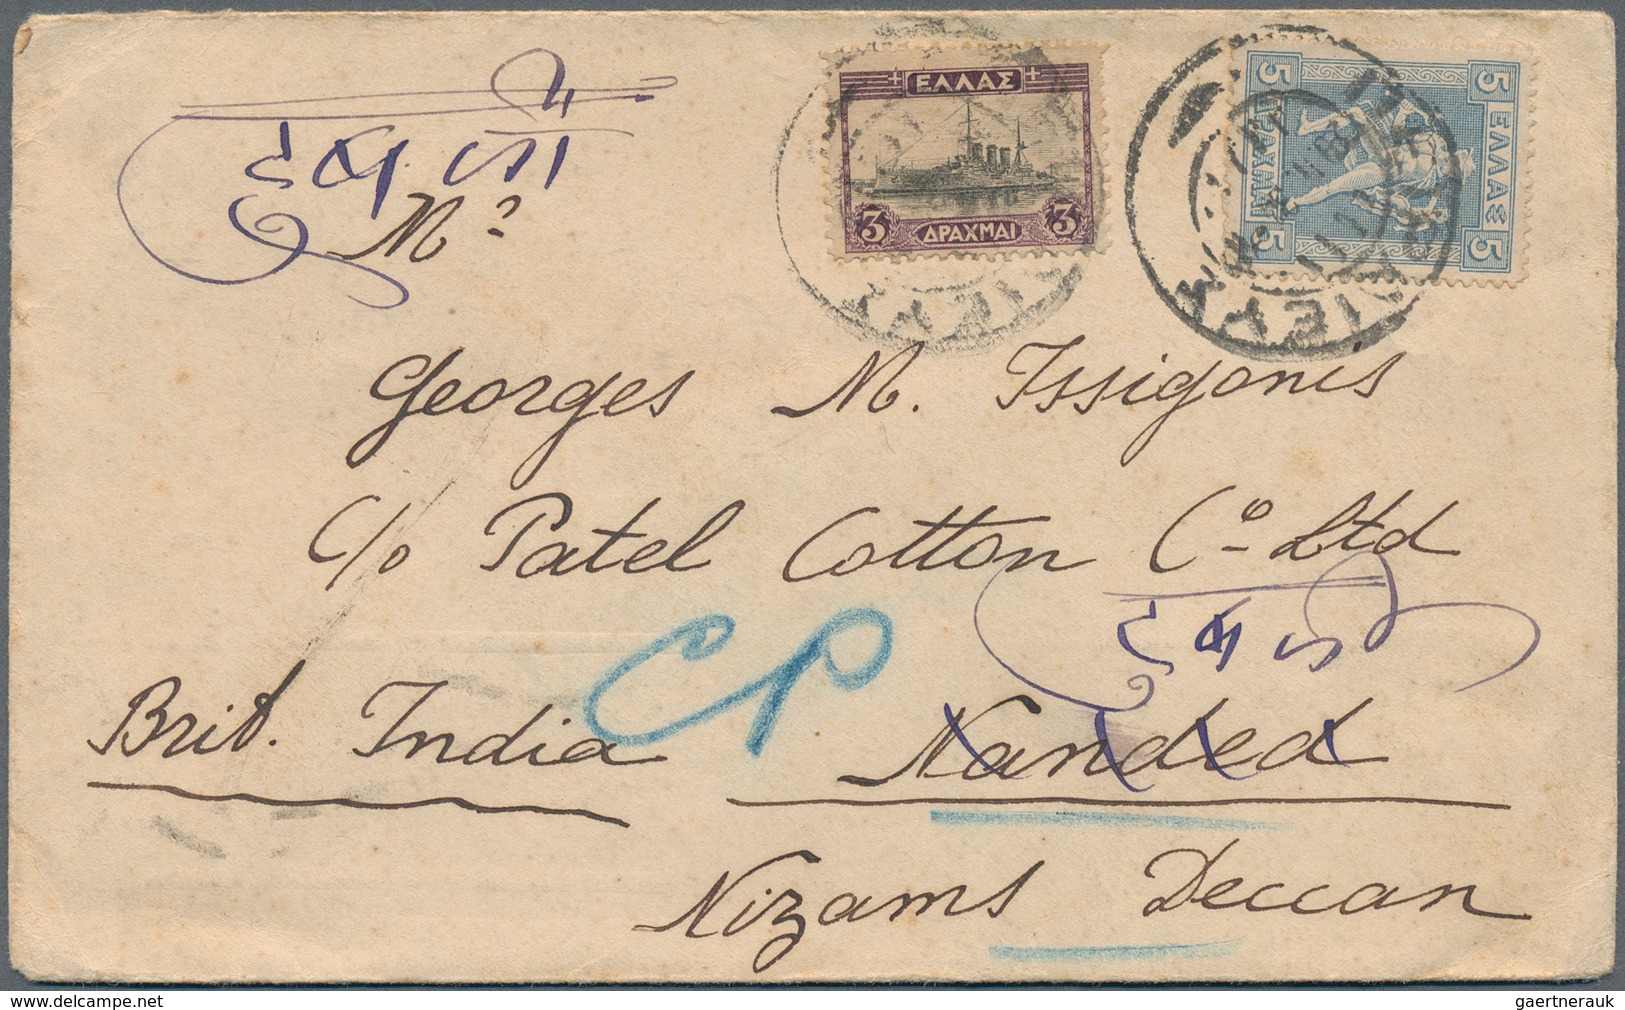 ΕΛΛΑΣ
3 ΔΡΑΧΜΑΙ 3
5 ΕΛΛΑΣ 5
5 ΔΡΑΧΜΑΙ 5
Mr
Georges M. Issigonis
c/o Patel Cotton Co Ltd
CP
Brit. India Nanded
Nizams Deccan
www.delcampe.net
gaertnerauk